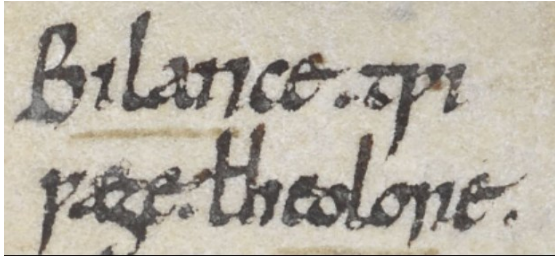 Bilance. tƿi
ƿæge. theolone.